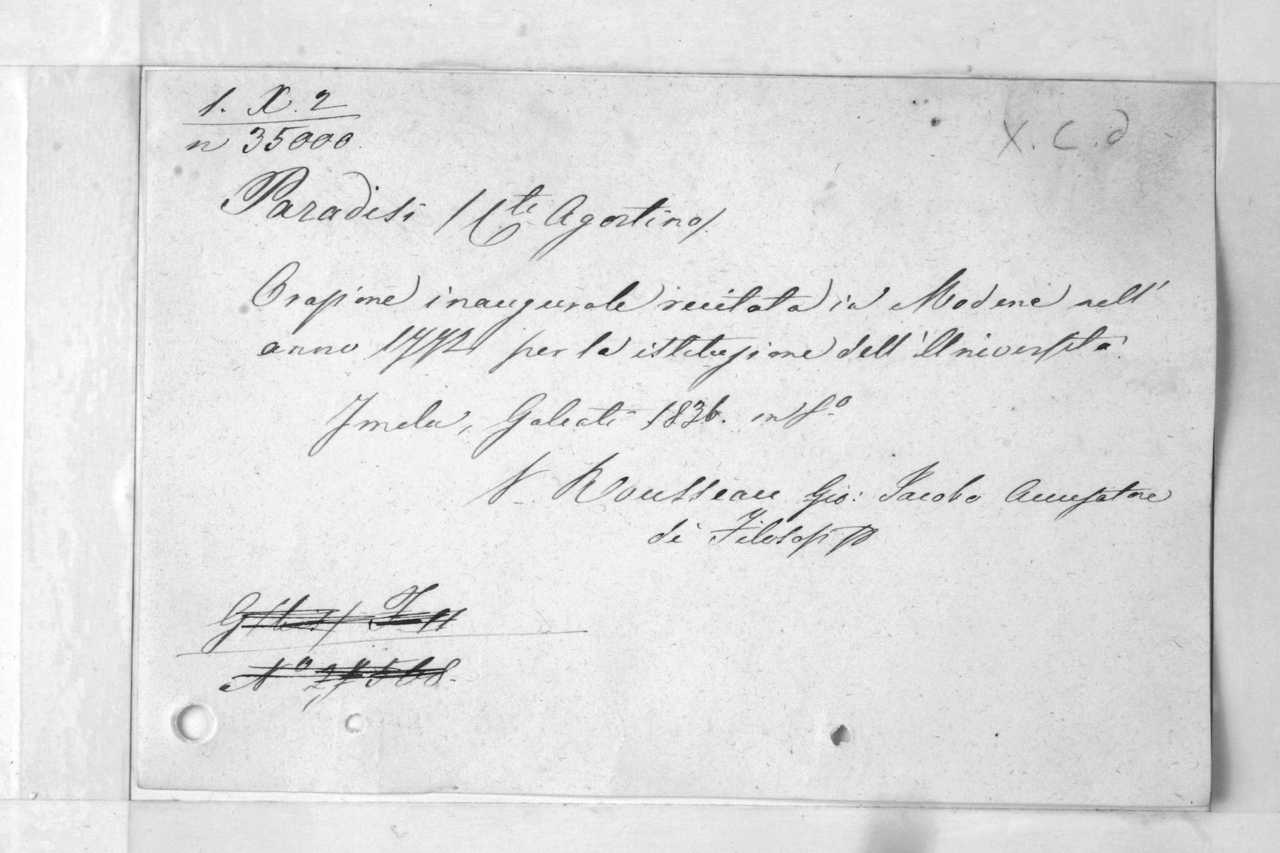 1. X. 2
n 35000
X. C. d
Paradisi /Cte Agostino/.
Orazione inaugurale recitata in Modena nell'
anno 1772 per la istituzione dell'Università.
Imola, Galeati 1836. in f.º
V. Rousseau Gio: Jacobo Accusatore
di Filosofi
Nº